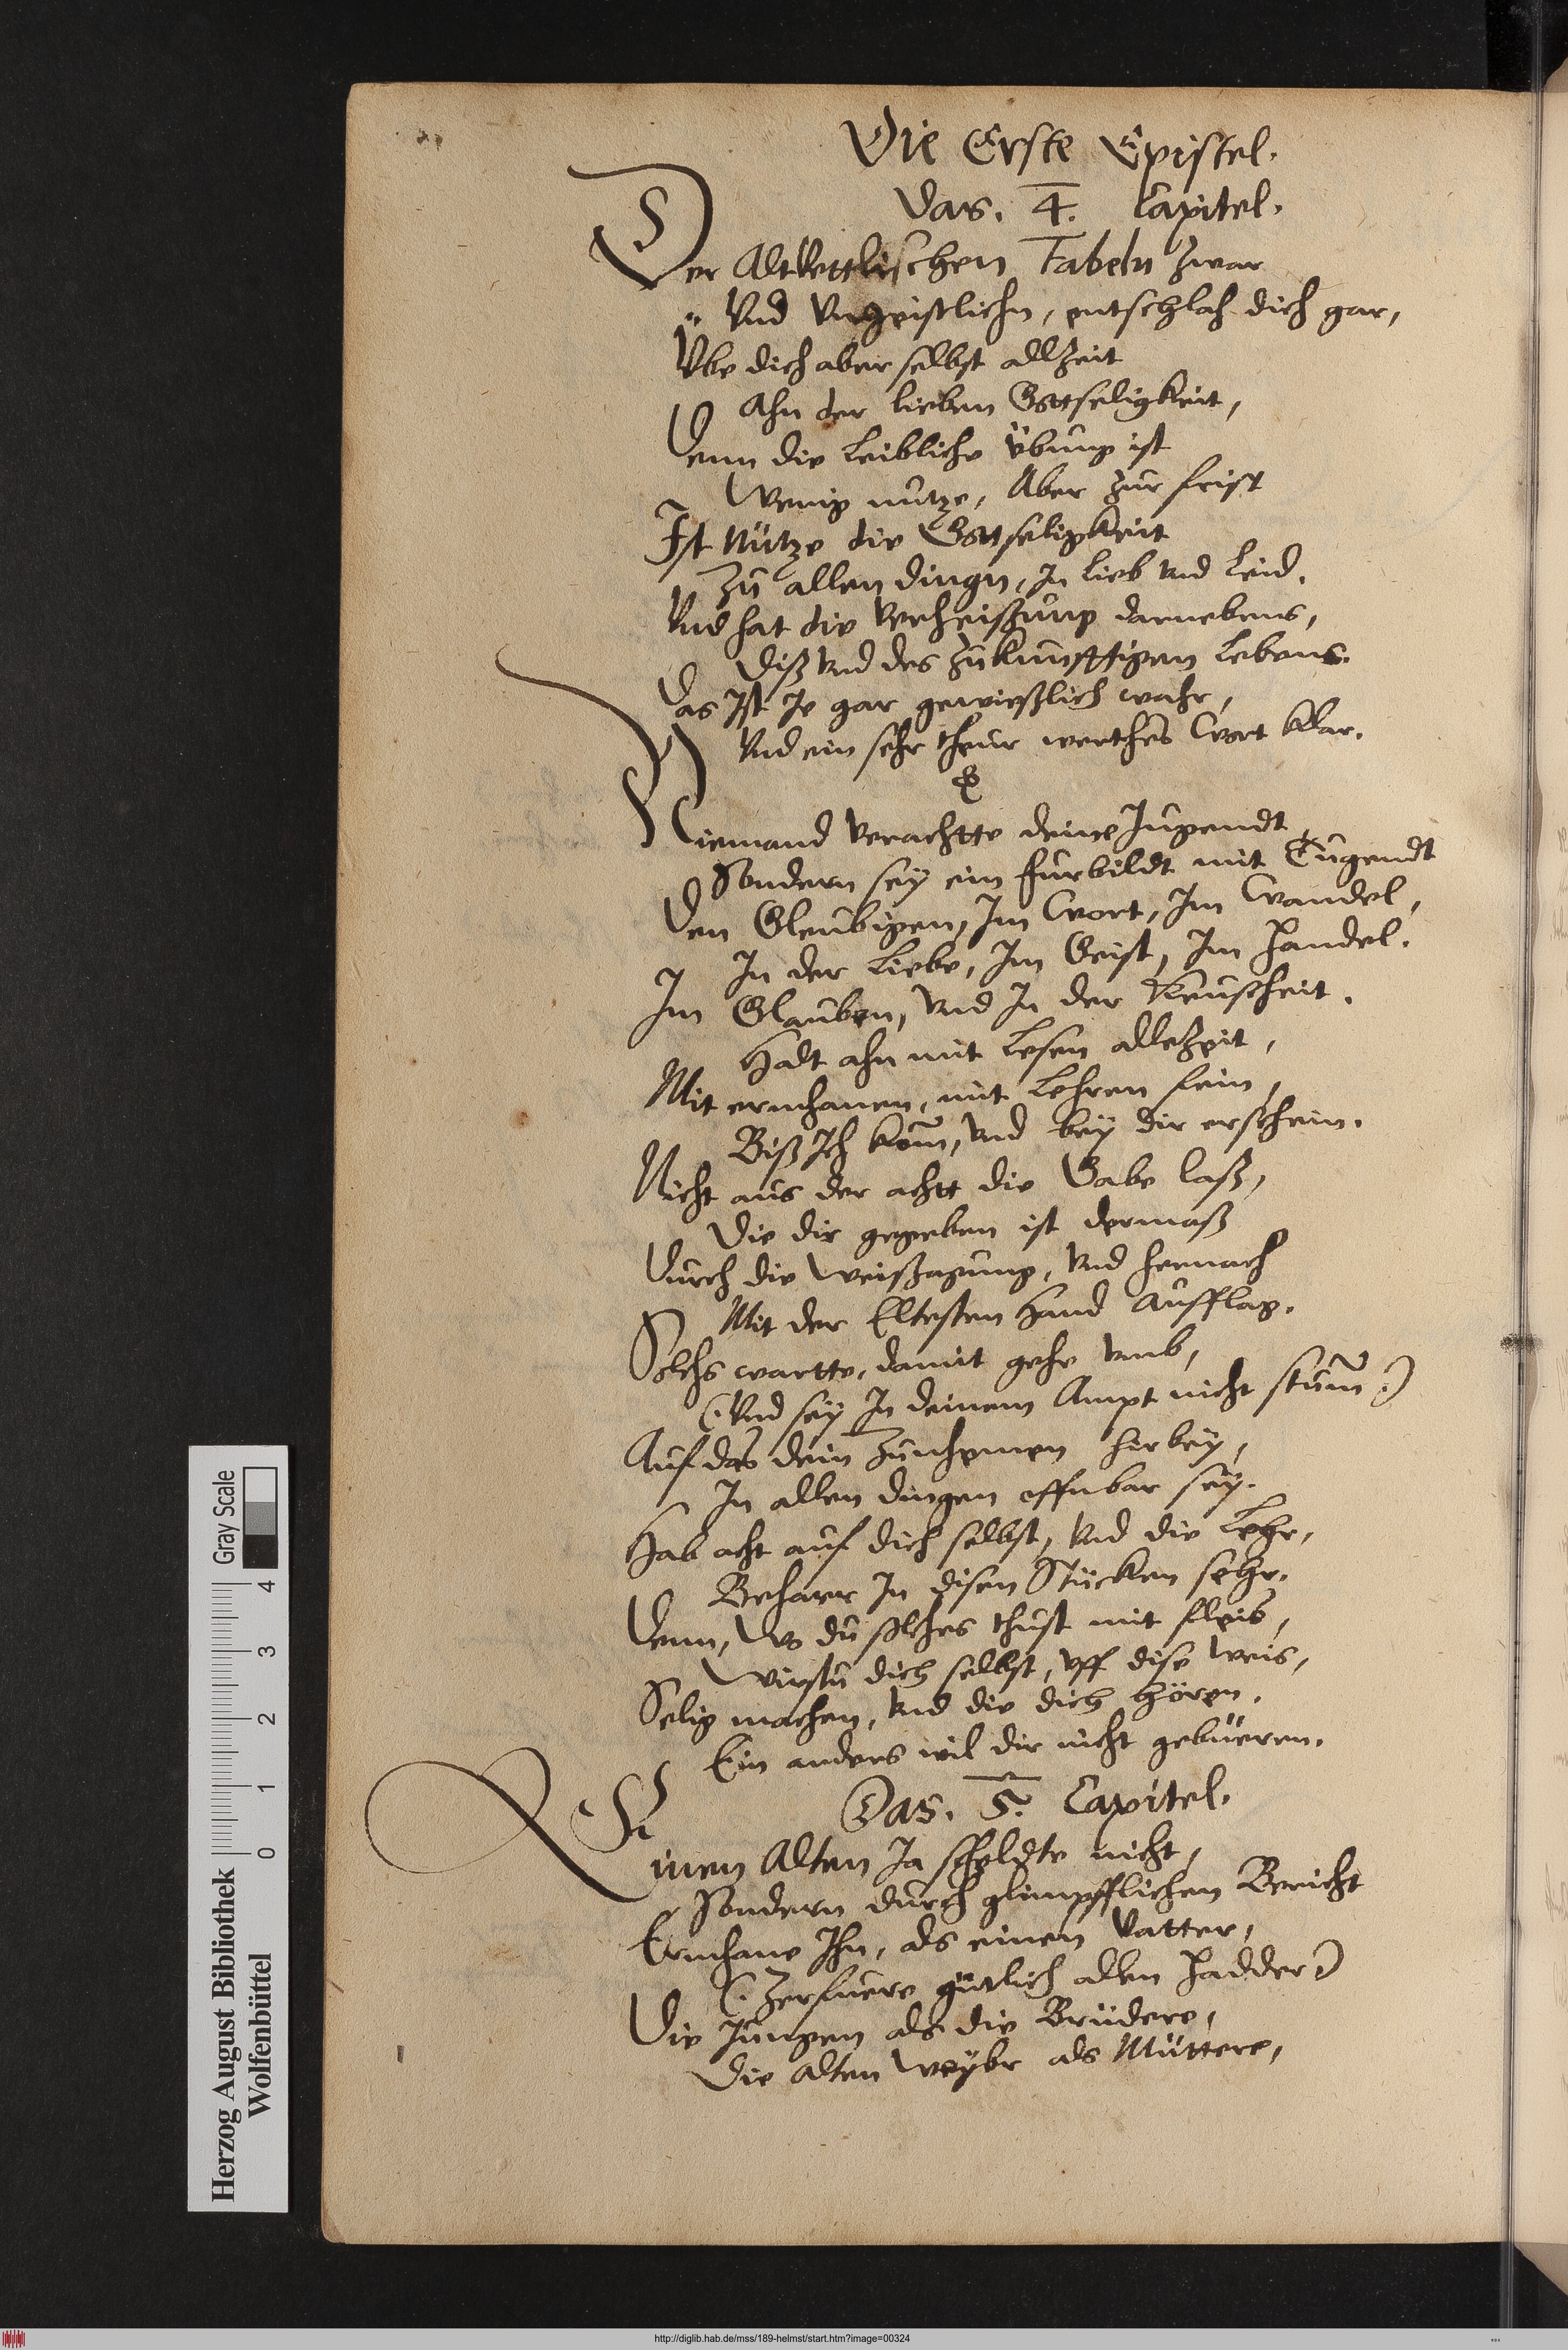 Die Erste Epistel.
Das. 4. Capitel.
Der Altvettlischen Fabeln zwar
Vnd Vngeistlichn, entschlah dich gar,
Vbe dich aber selbst allzeit
Ahn der lieben Gottseligkeit,
Denn die Leibliche Übung ist
Wenig nutze, Aber zur frist
Ist Nütze die Gottseligkeit
Zu allen dingn, In lieb vnd Leid.
Vnd hat die Verheißung darnebens,
Diß vnd des Zukunfftigen Lebens.
Das Ist Je gar gewißlich wahr,
Vnd ein sehr theur werthes Wort klar.
Niemand verachtte deine Jugendt
Sondern sey ein furbildt mit Tugendt
Den Gleubigen, Im Wort, Im Wandel,
In der Liebe, Im Geist, Im Handel.
Im Glauben, vnd In der Keuscheit.
Halt ahn mit Lesen allezeit,
Mit ermhanen, mit Lehren fein,
Biß Ich kom̄, vnd bey dir erschein.
Nicht aus der achtt die Gabe laß,
Die dir gegeben ist dermaß
Durch die Weißagung, vnd hernach
Mit der Eltesten Hand Aufflag.
Solchs wartte, damit gehe vmb,
(Vnd sey In deinem Ampt nicht stum̄)
Auf das dein Zunhemen hierbey,
In allen dingen offnbar sey.
Hab acht auf dich selbst, vnd die Lehr,
Beharr In disen Stücken sehr.
Denn, Wo du solches thust mit fleis,
Wirstu dich selbst, vff dise weis,
Selig machen, vnd die dich hören.
Ein anders wil dir nicht gebüeren.
Das. 5. Capitel.
Einen Alten Ja scheldte nicht,
Sondern durch glimpfflichen Bericht
Ermhane Ihn, als einen Vatter,
(Zerfuere gütlich allen Hadder)
Die Jungen als die Brüdere,
Die alten Weybr als Müttere,
Herzog August Bibliothek
Wolfenbüttel
0 1 2 3 4
Gray Scale
http://diglib.hab.de/mss/189-helmst/start.htm?image=00324